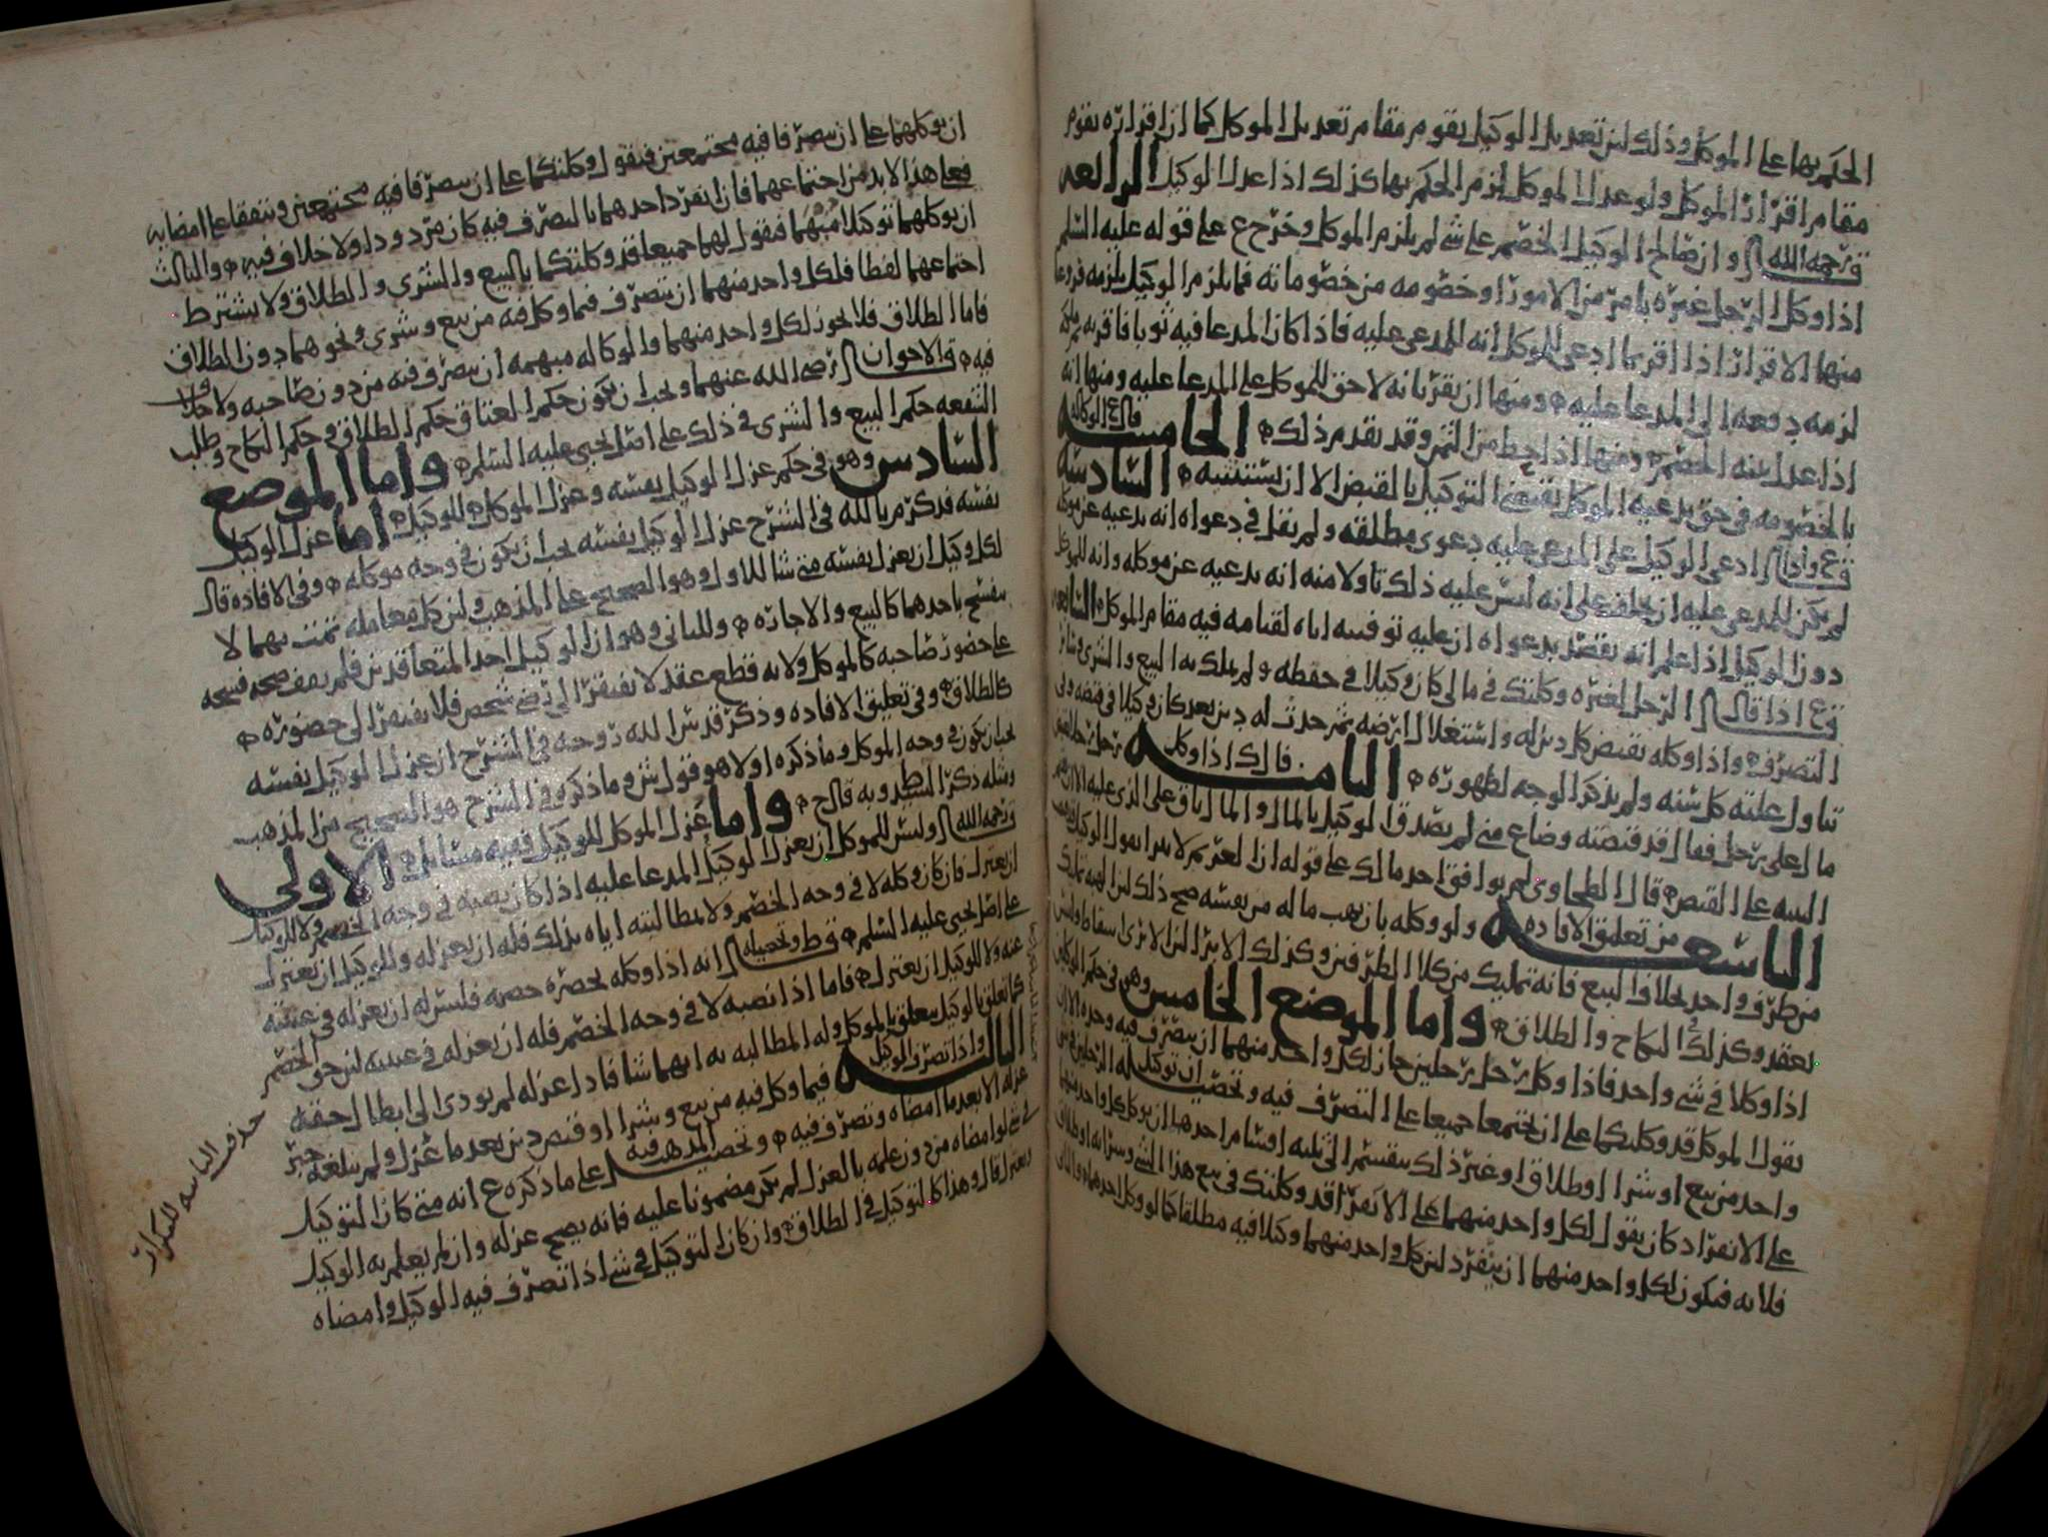 الحكم بها على الموكل وذلك لان تعديل الوكيل يقوم مقام تعديل الموكل كما ان اقراره يقوم
مقام اقرار الموكل ولو عدل الموكل لزم الحكم بها كذلك اذا عدل الوكيل الرابعه
وان صالح الوكيل الخصم على شي لم يلزم الموكل وخرج ع على قوله عليه السلم
اذا وكل الرجل غيره بامر من الامور او خصومه من خصوماته فما يلزم الوكيل يلزمه فروعا
منها الاقرار اذا اقر بما ادعى للموكل انه للمدعى عليه فاذا كان المدعا فيه ثوبا فاقر به
لزمه دفعه الى المدعا عليه ومنها ان يقر بانه لا حق للموكل على المدعا عليه ومنها انه
اذا عدل بينه الخصم ومنها اذا حط من الثمن وقد تقدم ذلك الخامسه قال ع الوكاله
بالخصومه في حق يدعيه الموكل يقتضي التوكيل بالقبض الا ان يستثنيه السادسه
ادعى الوكيل على المدعى عليه دعوى مطلقه ولم يقل في دعواه انه يدعيه عن موكله
لم يكن للمدعى عليه ان يحلف على انه ليس عليه ذلك تاولا منه انه يدعيه عن موكله وانه للموكل
دون الوكيل اذا علم انه يقصد بدعواه ان عليه توفيته اياه لقيامه فيه مقام الموكل السابعه
ع اذا قال الرجل لغيره وكلتك في مالي كان وكيلا في حفظه ولم يملك به البيع والشرى وسائر
التصرف واذا وكله بقبض كل دين له واستغلال ارضه ثم حدث له دين بعد كان وكيلا في قبضه وفي
تناول غلته كل سنه ولم يذكر الوجه لظهوره الثامنه قال ك اذا وكل رجل رجلا
ما على رجل فقال قد قبضته وضاع مني لم يصدق الوكيل بالمال والمال باق على الذي عليه الا ان
البينه على القبض قال الطحاوي لم يوافق احد مالك على قوله ان الغريم لا يبرا بقول الوكيل
التاسعه من تعليق الافاده ولو وكله بان يهب ماله من نفسه صح ذلك لان الهبه تمليك
من طرف واحد بخلاف البيع فانه تمليك من كلا الطرفين وكذلك الابرا لان الابرى اسقاط وليس
بعقد وكذلك في النكاح والطلاق واما الموضع الخامس وهو في حكم الوكيلين
اذا وكلا في شي واحد فاذا وكل رجل رجلين جاز لكل واحد منهما ان يتصرف فيه وحده الا ان
يقول الموكل قد وكلتكما على ان تجتمعا جميعا على التصرف فيه وتحصيله ان توكيل الرجلين في شي
واحد من بيع او شرا او طلاق او غير ذلك ينقسم الى ثلثه اقسام احدها ان يوكل كل واحد منهما
على الانفراد كان يقول لكل واحد منهما على الانفراد قد وكلتك في بيع هذا الشي وشرائه او طلاق
فلانه فيكون لكل واحد منهما ان يتفرد لان كل واحد منهما وكيلا فيه مطلقا كما لو وكل احدهما والثاني
ان يوكلهما على ان يتصرفا فيه مجتمعين فيقول وكلتكما على ان يتصرفا فيه مجتمعين وتتفقا على امضايه
فعلى هذا لا بد من اجتماعهما فان انفرد احدهما بالتصرف فيه كان مردودا ولا خلاف فيه والثالث
ان يوكلهما توكيلا مبهما فيقول لهما جميعا قد وكلتكما بالبيع والشرى والطلاق ولا يشترط
اجتماعهما لفظا فلكل واحد منهما ان يتصرف فيما وكل فيه من بيع وشرى ونحوهما دون الطلاق
فاما الطلاق فلا يجوز لكل واحد منهما والوكاله مبهمه ان يتصرف فيه من دون صاحبه ولا خلاف
فيه قال الاخوان رضي الله عنهما ويجب ان يكون حكم العتاق حكم الطلاق وحكم النكاح وطلب
الشفعه حكم البيع والشرى في ذلك على اصل يحيى عليه السلم واما الموضع
السادس وهو في حكم عزل الوكيل نفسه وعزل الموكل للوكيل اما عزل الوكيل
نفسه فذكر م بالله في الشرح عزل الوكيل نفسه يجب ان يكون في وجه موكله وفي الافاده قال
لكل وكيل ان يعزل نفسه متى شا للاول وهو الصحيح على المذهب لان كل معامله تمت بهما لا
ينفسخ باحدهما كالبيع والاجاره وللثاني وهو ان الوكيل احد المتعاقدين فلم يقف صحه فسخه
على حضور صاحبه كالموكل ولانه قطع عقد لا يفتقر الى رضى شخص فلا يفتقر الى حضوره
كالطلاق وفي تعليق الافاده وذكر قدس الله روحه في الشرح ان عزل الوكيل نفسه
يجب ان يكون في وجه الموكل وما ذكره اولا هو قول ش وما ذكره في الشرح هو الصحيح من المذهب
ومثله ذكر وبه قال ح واما عزل الموكل للوكيل ففيه مسايل الاولى
وليس للموكل ان يعزل الوكيل المدعا عليه اذا كان نصبه في وجه الخصم ولا للوكيل
ان يعتزل فان كان وكله لا في وجه الخصم ولا لمطالبته اياه بذلك فله ان يعزله وللوكيل ان يعتزل
على اصل يحيى عليه السلم وتحصيله انه اذا وكله بحضره خصمه فليس له ان يعزله في غيبته
عنه ولا للوكيل ان يعتزل فاما اذا نصبه لا في وجه الخصم فله ان يعزله في غيبته لان حق الخصم
كما تعلق بالوكيل يتعلق بالموكل وله المطالبه به ايهما شا فاذا عزله لم يودى الى ابطال حقه
الثانيه واذا تصرف الوكيل فيما وكل فيه من بيع وشرا او قبض دين بعد ما عزل ولم يبلغه خبر
عزله الا بعد ما امضاه وتصرف فيه وتحصيل المذهب فيه على ما ذكره ع انه متى كان التوكيل
في شي لو امضاه من دون علمه بالعزل لم يكن مضمونا عليه فانه يصح عزله وان لم يعلم به الوكيل
قال وهذا كالتوكيل في الطلاق وان كان التوكيل في شي اذا تصرف فيه الوكيل وامضاه
حذف الثانيه للتكرار